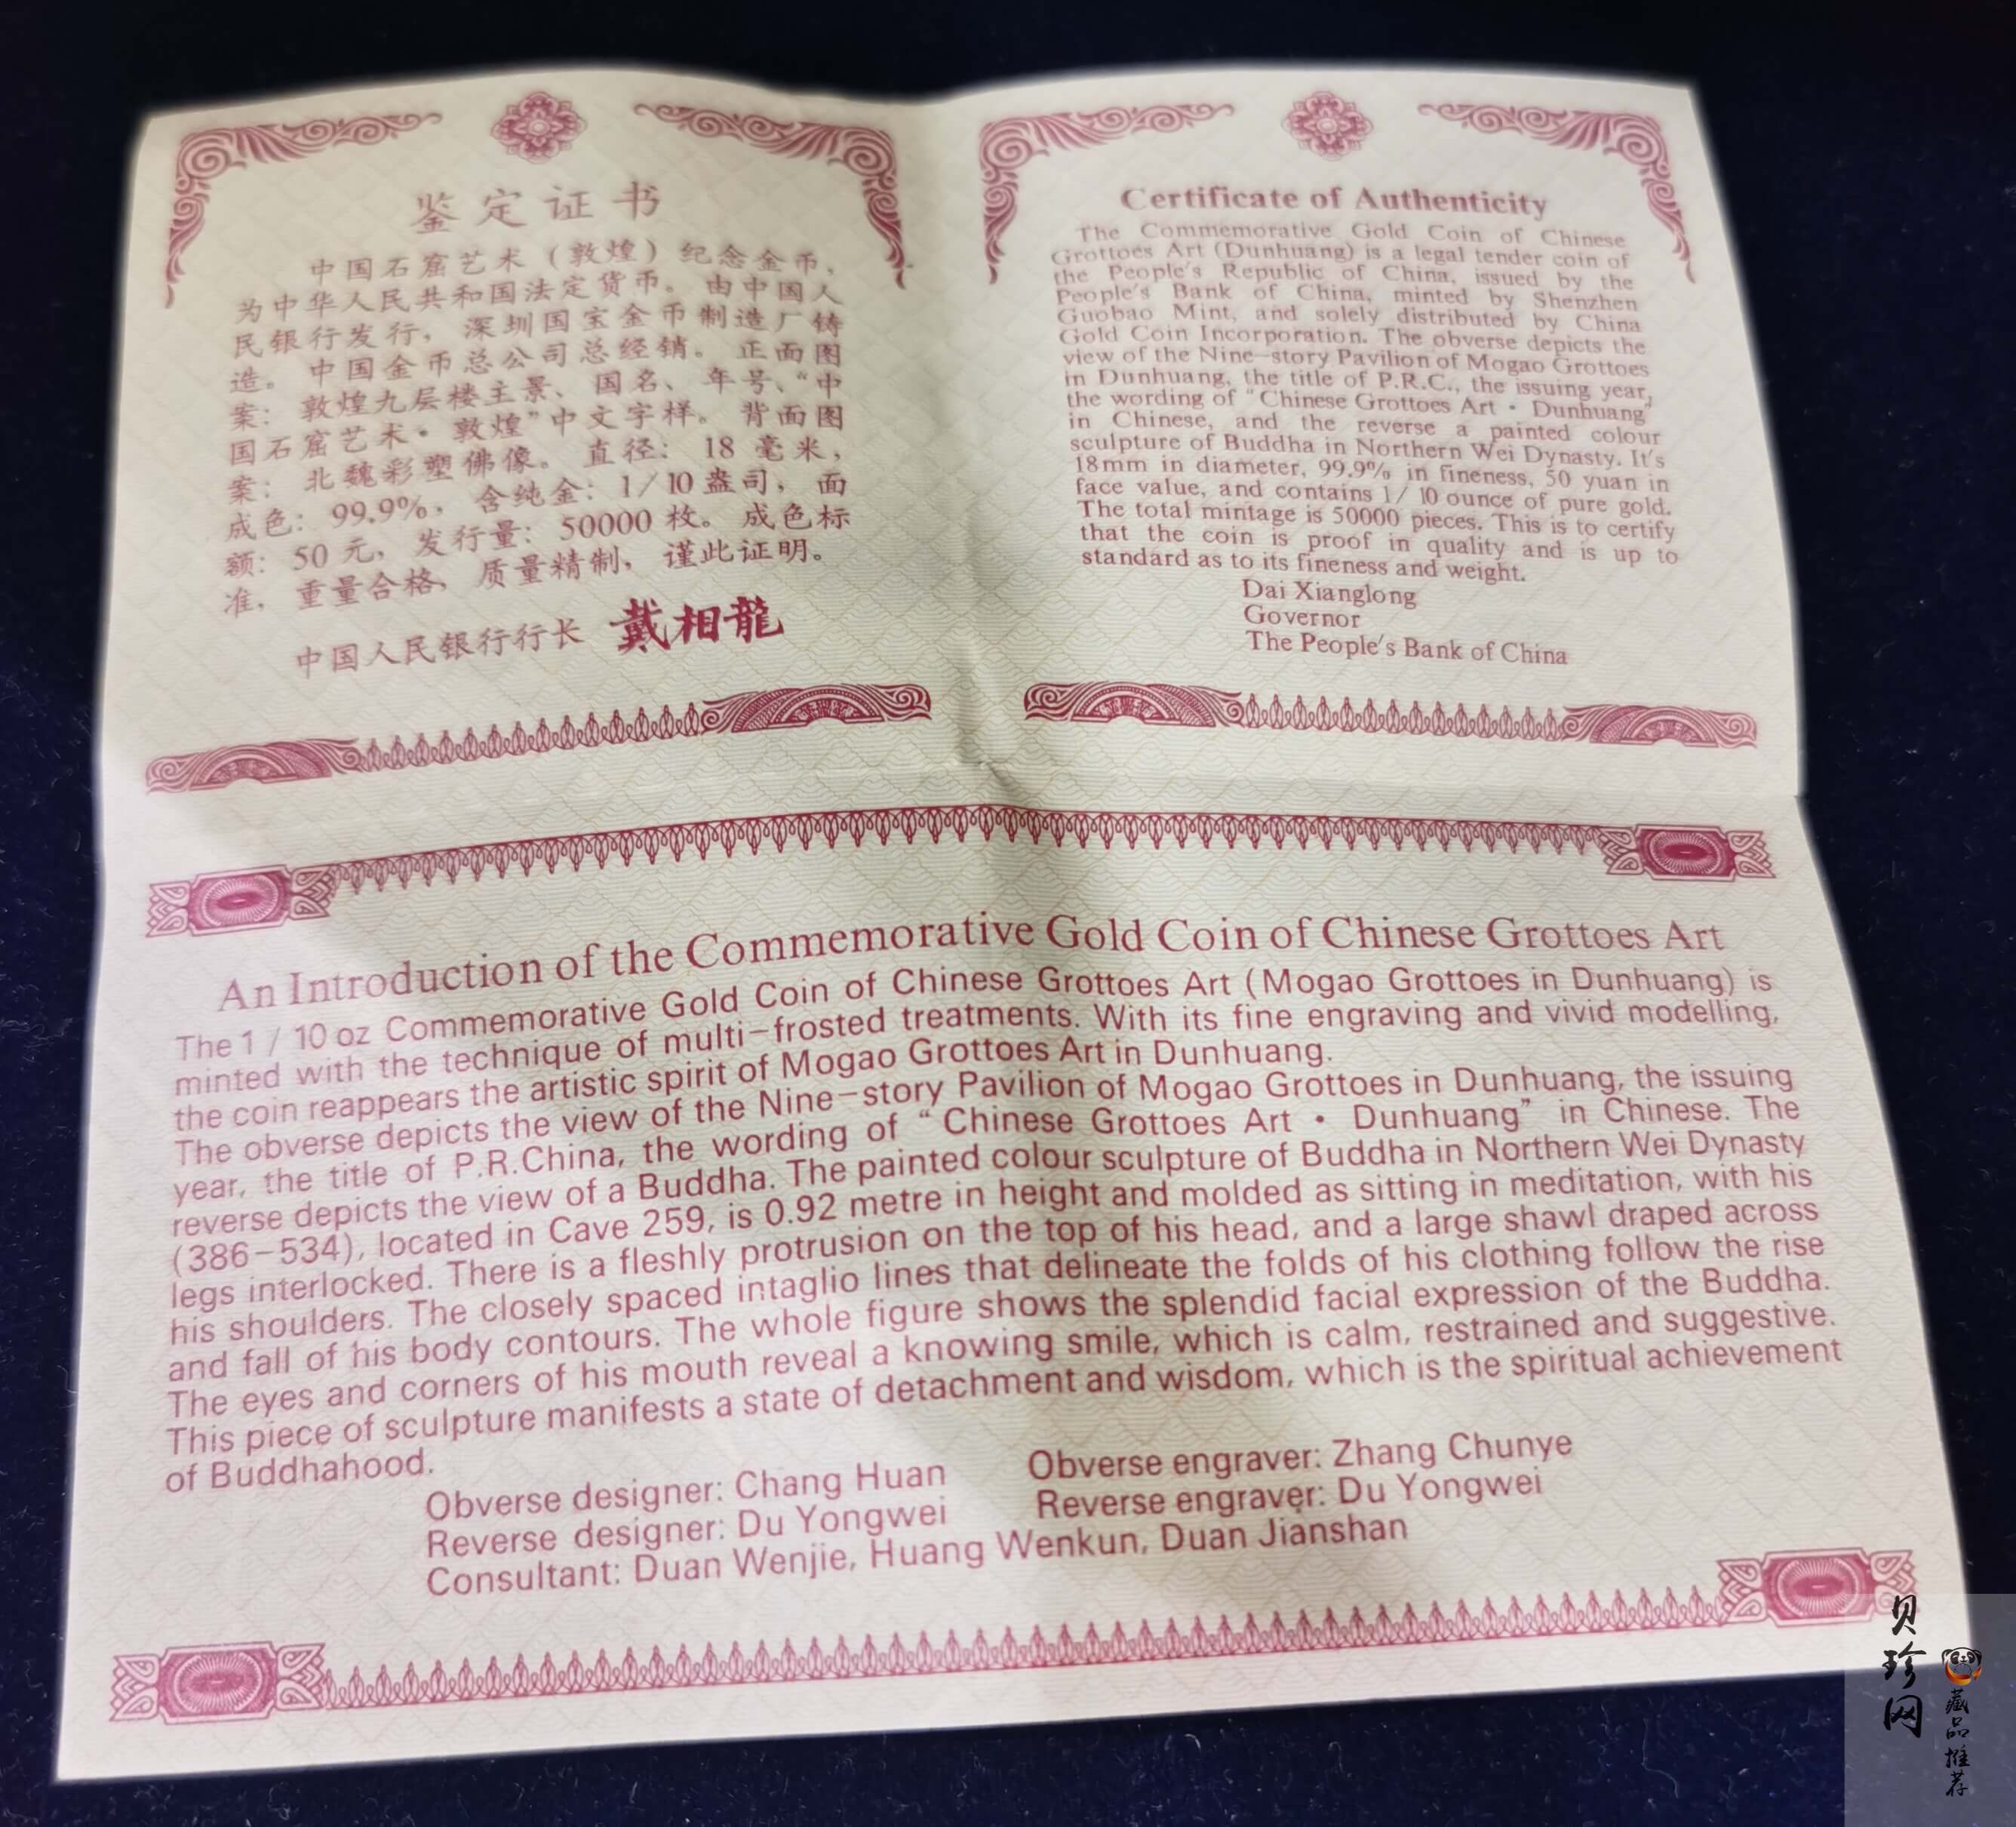 鉴定证书
中国石窟艺术（敦煌）纪念金币，
为中华人民共和国法定货币。由中国人
民银行发行，深圳国宝金币制造厂铸
造。中国金币总公司总经销。正面图
案：敦煌九层楼主景、国名、年号、“中
国石窟艺术·敦煌”中文字样。背面图
案：北魏彩塑佛像。直径：18毫米，
成色：99.9%，含纯金：1/10盎司，面
额：50元，发行量：50000枚。成色标
准，重量合格，质量精制，谨此证明。
中国人民银行行长 戴相龍
Certificate of Authenticity
The Commemorative Gold Coin of Chinese
Grottoes Art (Dunhuang) is a legal tender coin of
the People's Republic of China, issued by the
People's Bank of China, minted by Shenzhen
Guobao Mint, and solely distributed by China
Gold Coin Incorporation. The obverse depicts the
view of the Nine-story Pavilion of Mogao Grottoes
in Dunhuang, the title of P.R.C., the issuing year,
the wording of "Chinese Grottoes Art · Dunhuang"
in Chinese, and the reverse a painted colour
sculpture of Buddha in Northern Wei Dynasty. It's
18mm in diameter, 99.9% in fineness, 50 yuan in
face value, and contains 1/10 ounce of pure gold.
The total mintage is 50000 pieces. This is to certify
that the coin is proof in quality and is up to
standard as to its fineness and weight.
Dai Xianglong
Governor
The People's Bank of China
An Introduction of the Commemorative Gold Coin of Chinese Grottoes Art
The 1/10 oz Commemorative Gold Coin of Chinese Grottoes Art (Mogao Grottoes in Dunhuang) is
minted with the technique of multi-frosted treatments. With its fine engraving and vivid modelling,
the coin reappears the artistic spirit of Mogao Grottoes Art in Dunhuang.
The obverse depicts the view of the Nine-story Pavilion of Mogao Grottoes in Dunhuang, the issuing
year, the title of P.R.China, the wording of "Chinese Grottoes Art · Dunhuang" in Chinese. The
reverse depicts the view of a Buddha. The painted colour sculpture of Buddha in Northern Wei Dynasty
(386-534), located in Cave 259, is 0.92 metre in height and molded as sitting in meditation, with his
legs interlocked. There is a fleshly protrusion on the top of his head, and a large shawl draped across
his shoulders. The closely spaced intaglio lines that delineate the folds of his clothing follow the rise
and fall of his body contours. The whole figure shows the splendid facial expression of the Buddha.
The eyes and corners of his mouth reveal a knowing smile, which is calm, restrained and suggestive.
This piece of sculpture manifests a state of detachment and wisdom, which is the spiritual achievement
of Buddhahood.
Obverse designer: Chang Huan Obverse engraver: Zhang Chunye
Reverse designer: Du Yongwei Reverse engraver: Du Yongwei
Consultant: Duan Wenjie, Huang Wenkun, Duan Jianshan
贝珍网
藏品推荐